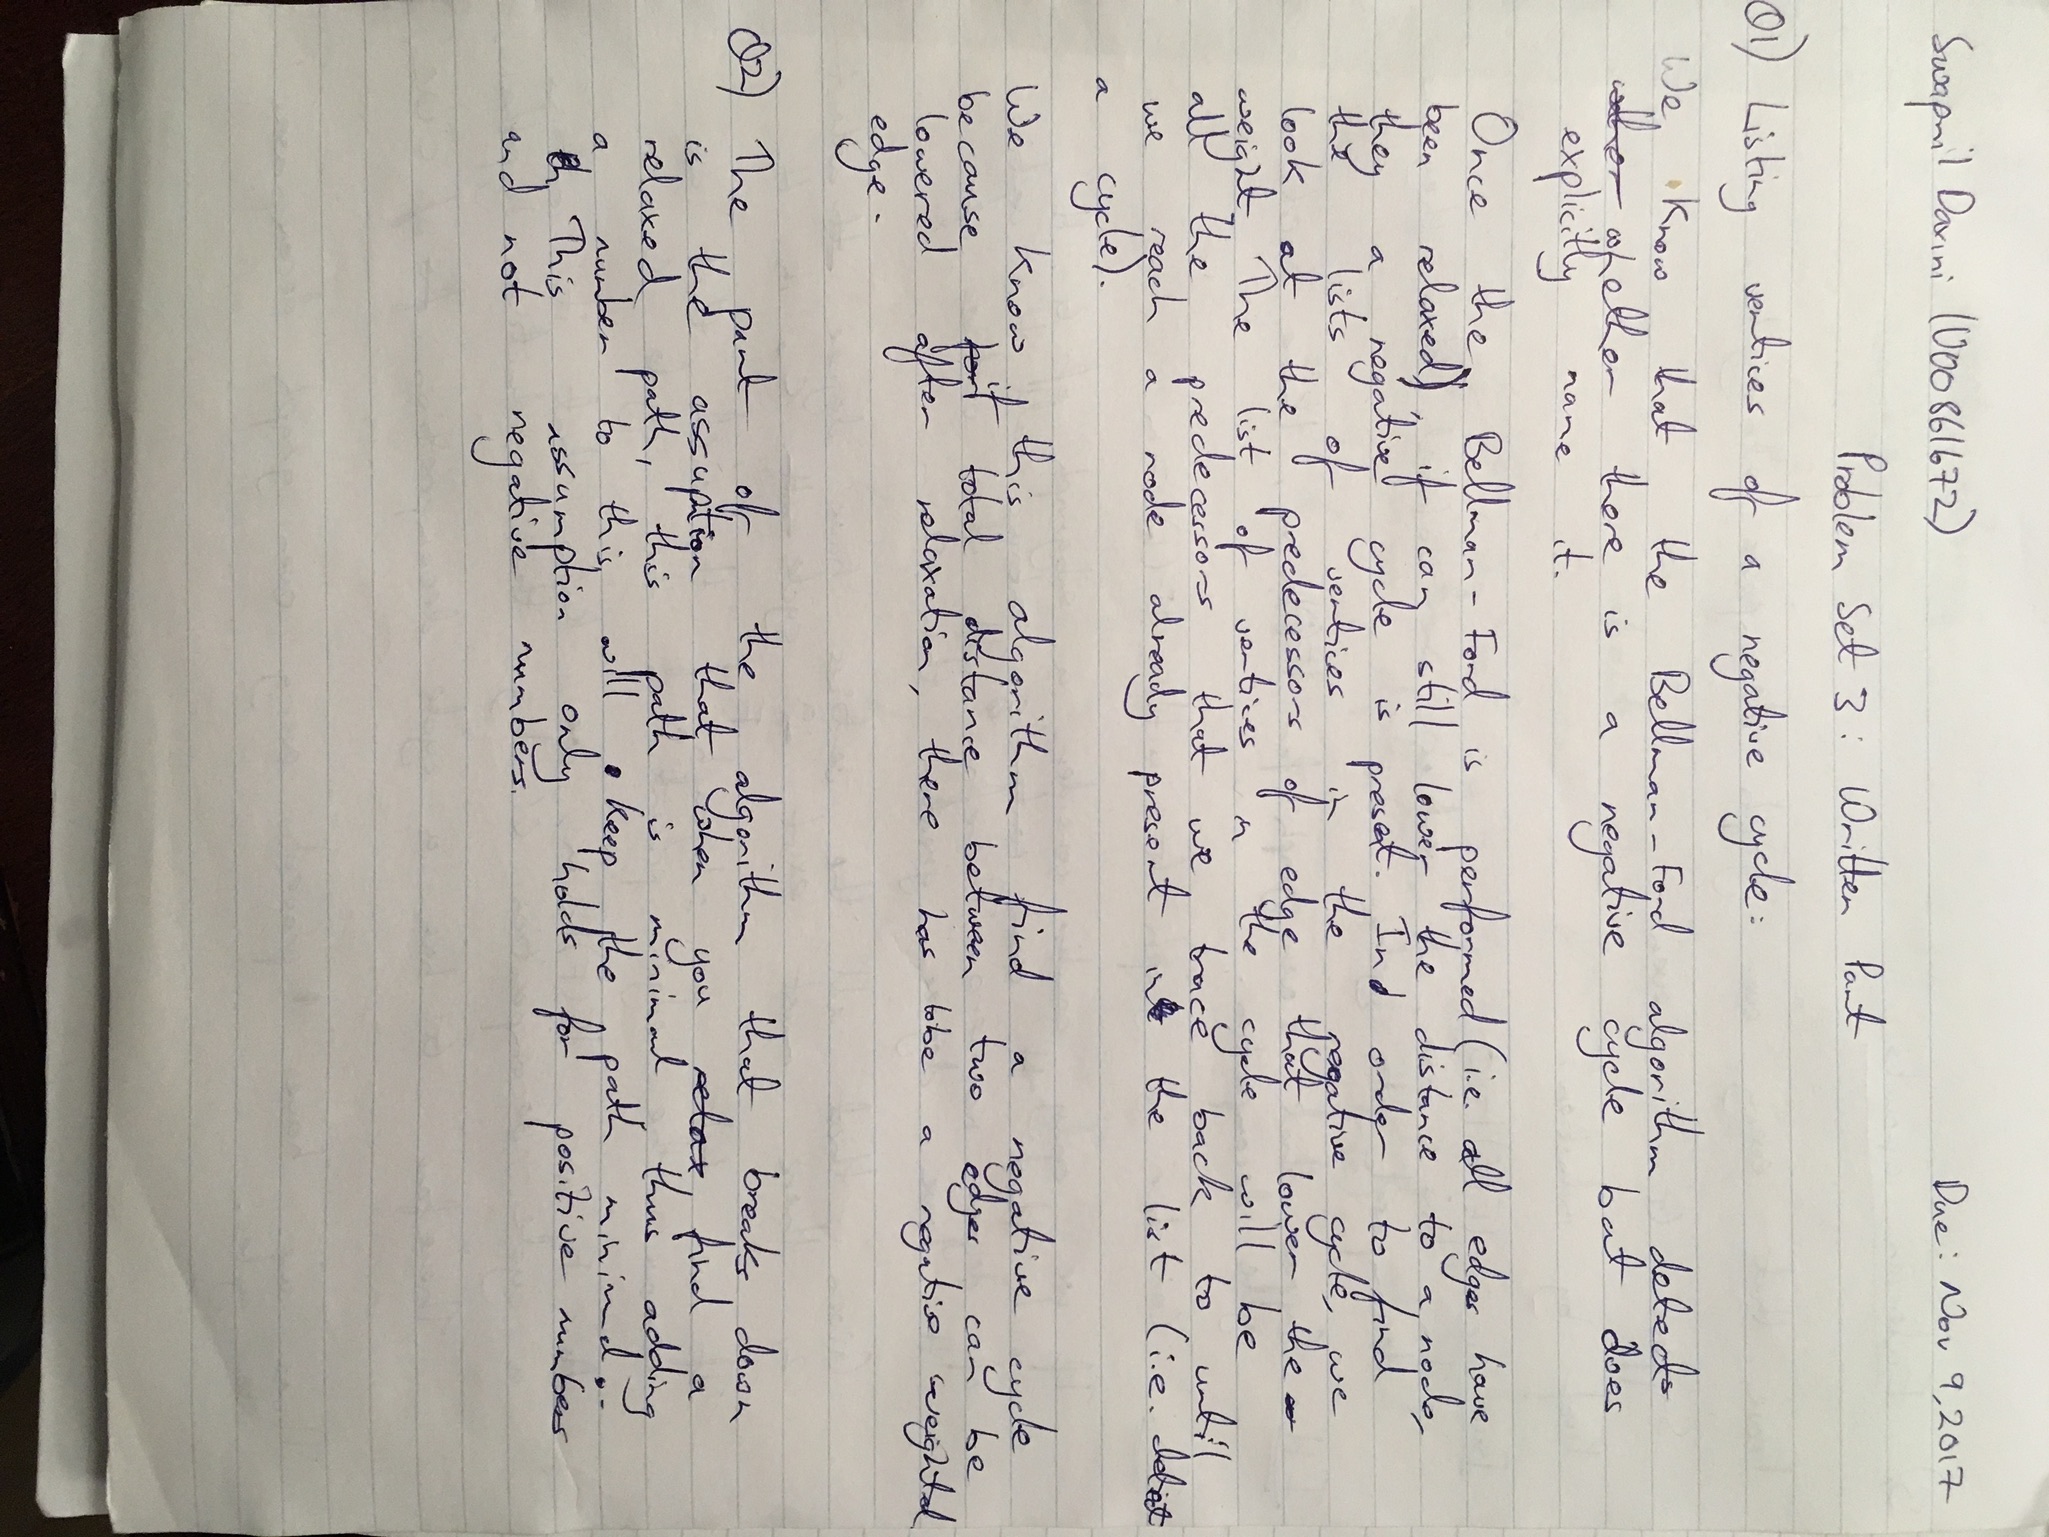 Swapnil Daxini (V00861672) Due: Nov 9, 2017
Problem Set 3: Written Part
Q1) Listing vertices of a negative cycle:
We know that the Bellman-Ford algorithm detects
whether there is a negative cycle but does
explicitly name it.
Once the Bellman-Ford is performed (i.e. all edges have
been relaxed), if can still lower the distance to a node,
they a negative cycle is present. In order to find
the lists of vertices in the negative cycle, we
look at the predecessors of edge that lower the
weight. The list of vertices in the cycle will be
all the predecessors that we trace back to until
we reach a node already present in the list (i.e. detect
a cycle).
We know if this algorithm find a negative cycle
because if total distance between two edges can be
lowered after relaxation, there has to be a negative weighted
edge.
Q2) The part of the algorithm that breaks down
is the assuption that when you relax find a
relaxed path, this path is minimal, thus adding
a number to this will keep the path minimal.
This assumption only holds for positive numbers
and not negative numbers.